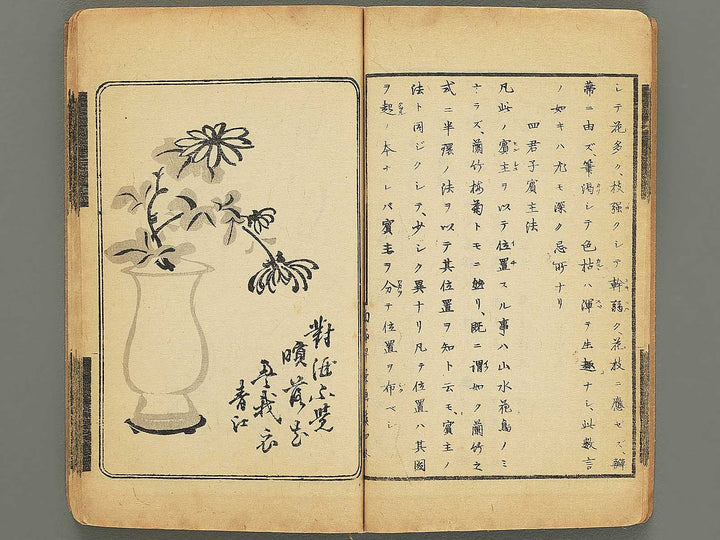 シテ花多ク、枝强クシテ幹弱ク、花枝ニ應セズ、瓣
蒂ニ由ズ、筆渇シテ色枯ハ渾ヲ生趣ナシ、此數言
ノ如キハ尤モ深ク忌所ナリ
四君子賓主法
凡此ノ賓主ヲ以テ位置スル事ハ山水花鳥ノミ
ナラズ、蘭竹梅菊トモニ然リ、既ニ謂如ク蘭竹之
式ニ半環ノ法ヲ以テ其位置ヲ知ト云モ、賓主ノ
法ト同ジクシテ、少シク異ナリ凡テ位置ハ其圖
ヲ起ノ本ナレバ賓主ヲ分テ位置ヲ布ベシ
對酒不覺
暝落花
盈我衣
青江